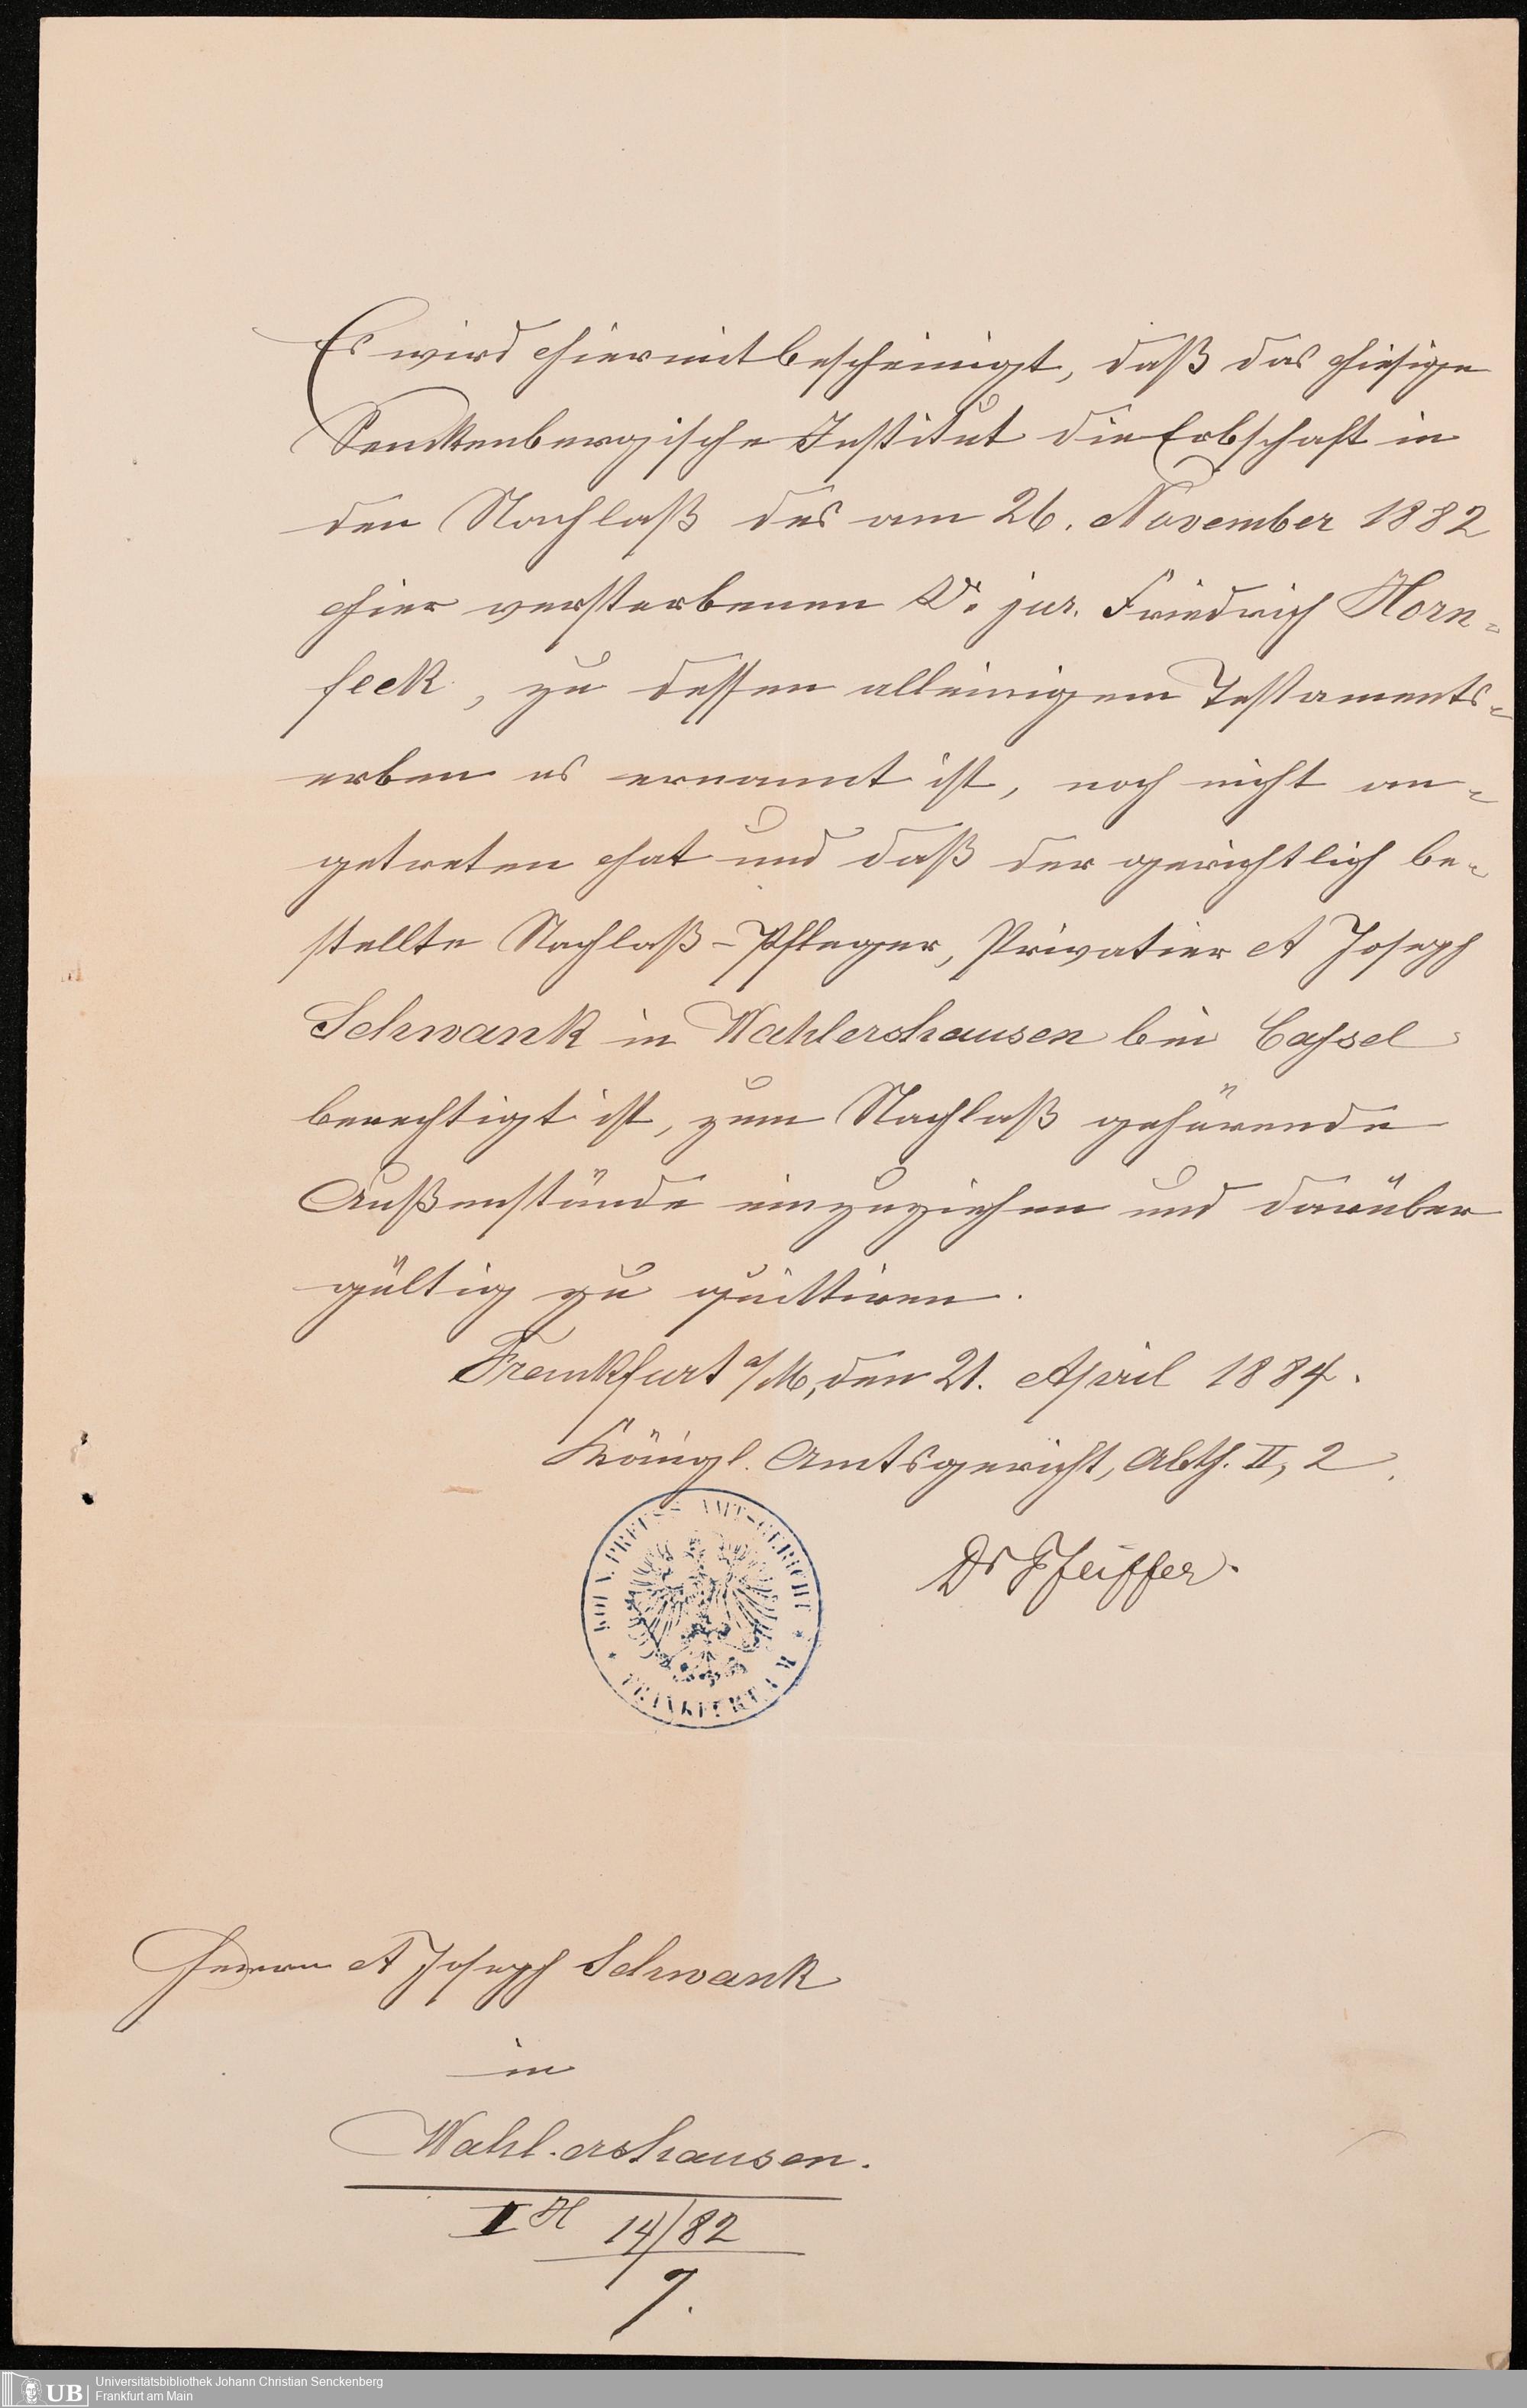 Es wird hiermit bescheinigt, daß das hiesige
Senckenbergische Institut die Erbschaft in
den Nachlaß des am 26. November 1882
hier verstorbenen Dr. jur. Friedrich Horn-
feck, zu dessen alleinigem Testaments-
erben es ernannt ist, noch nicht an-
getreten hat und daß der gerichtlich be-
stellte Nachlaß-Pfleger, Privatier A Joseph
Schwank in Wahlershausen bei Cassel
berechtigt ist, zum Nachlaß gehörende
Außenstände einzuziehen und darüber
gültig zu quittiren.
Frankfurt a/M, den 21. April 1884.
Königl. Amtsgericht, Abth. II, 2.
Dr Pfeiffer.
KÖN. PREUSS. AMT-GERICHT
* FRANKFURT A. M. *
Herrn A Joseph Schwank
in
Wahlershausen.
II H 14/82
7.
UB
Universitätsbibliothek Johann Christian Senckenberg
Frankfurt am Main